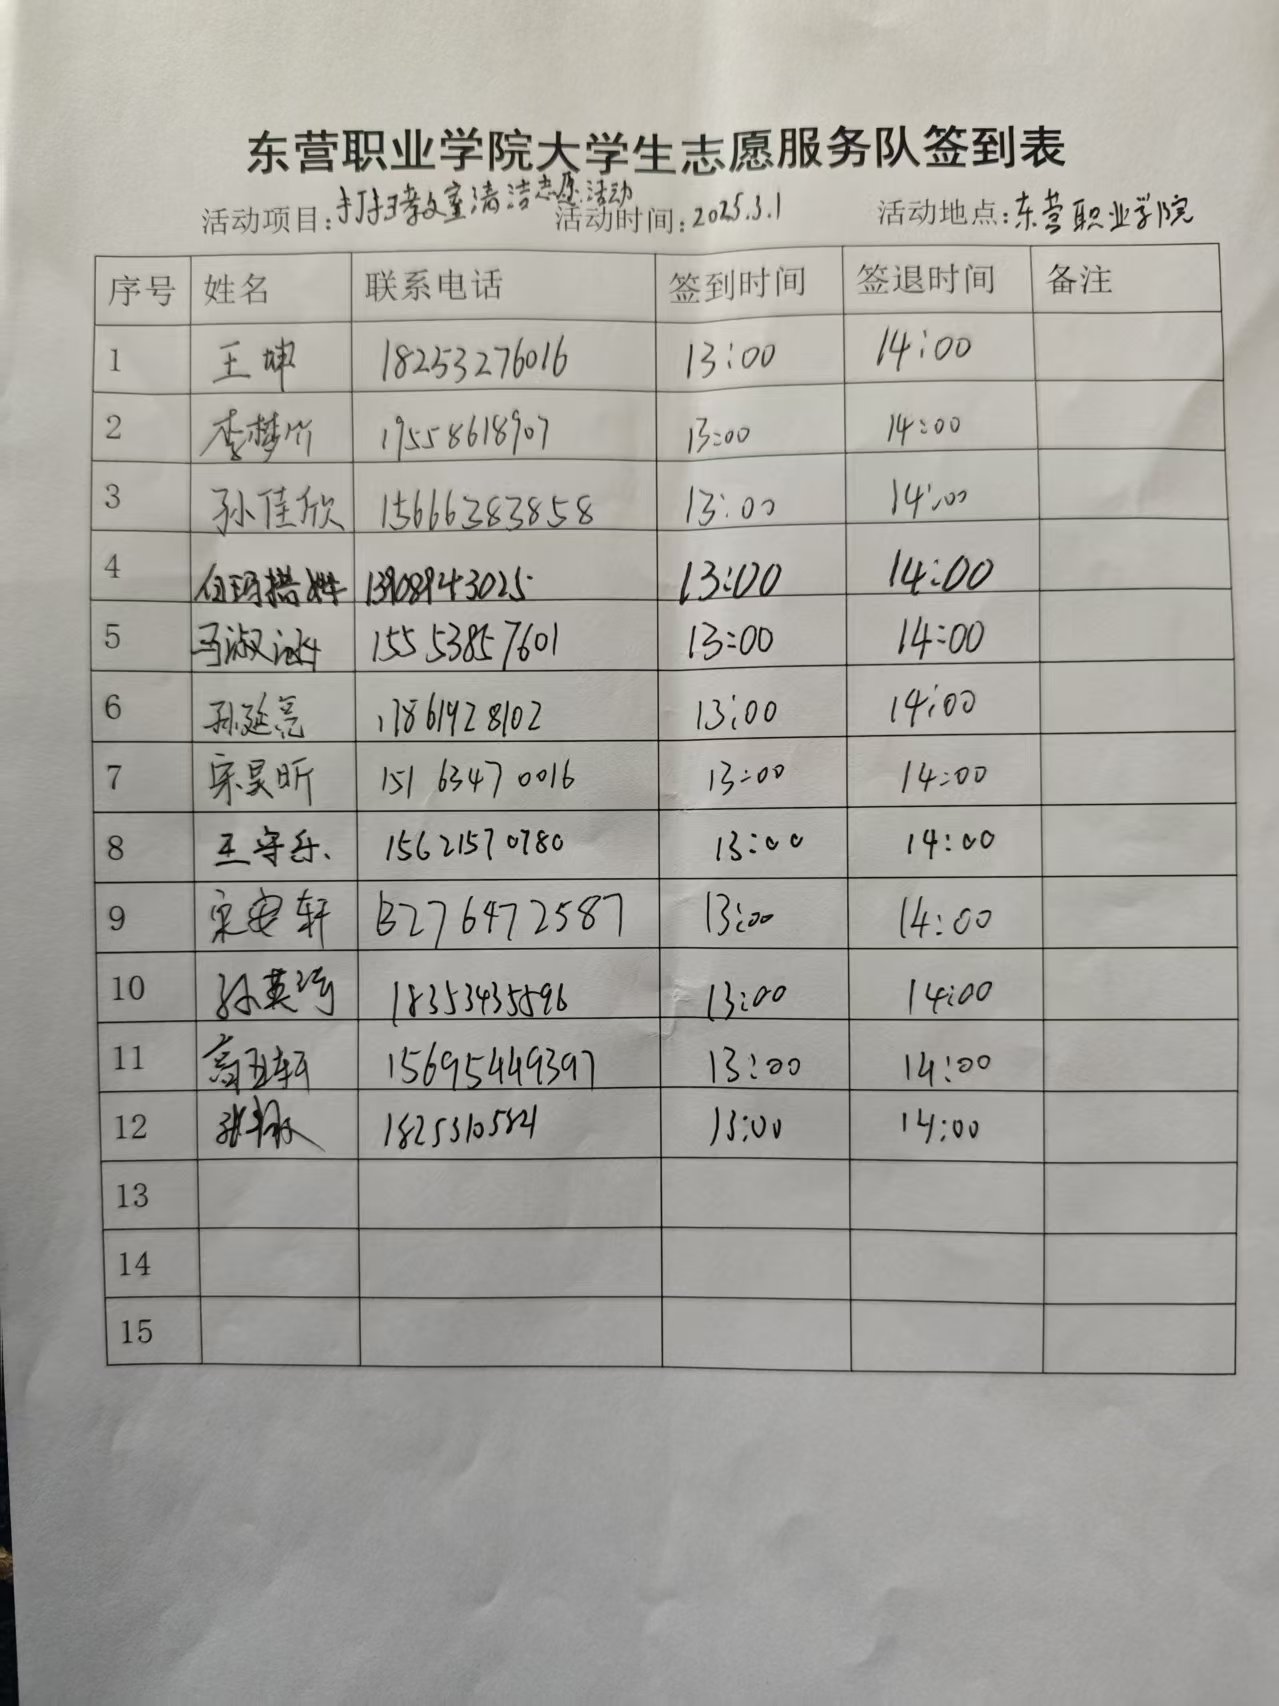 东营职业学院大学生志愿服务队签到表
活动项目:打扫教室清洁志愿活动 活动时间:2025.3.1 活动地点:东营职业学院
序号 姓名 联系电话 签到时间 签退时间 备注
1 王坤 18253276016 13:00 14:00
2 李梦竹 19558618907 13:00 14:00
3 孙佳欣 15666383858 13:00 14:00
4 13908943025 13:00 14:00
5 15553857601 13:00 14:00
6 孙延亮 17861928102 13:00 14:00
7 宋昊昕 15163470016 13:00 14:00
8 王守乐 15621570780 13:00 14:00
9 宋安轩 13276472587 13:00 14:00
10 孙英琦 18353435596 13:00 14:00
11 15695449397 13:00 14:00
12 13:00 14:00
13
14
15